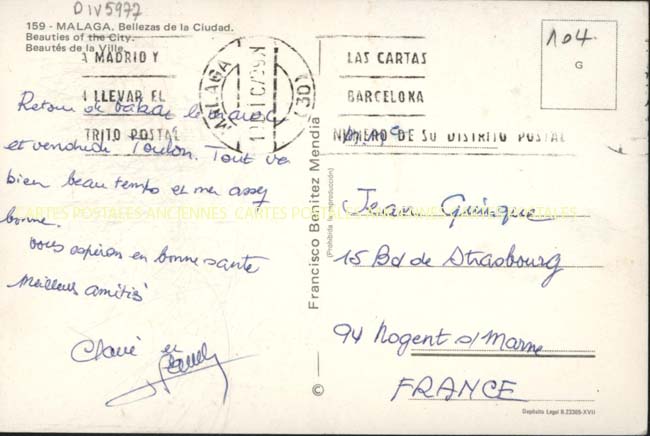 DIV5977
159 - MALAGA. Bellezas de la Ciudad.
Beauties of the City.
Beautés de la Ville.
A MADRID Y
A LLEVAR EL
TRITO POSTAL
MALAGA
LAS CARTAS
BARCELONA
NUMERO DE SU DISTRITO POSTAL
104
G
Retour de
et vendredi Toulon. Tout va
bien beau temps et mer assez
bonne.
vous espéron en bonne santé
Meilleurs amitiés
et
Francisco Benitez Mendia
(Prohibida la reproducción)
©
Jean
15 Bd de Strasbourg
94 Nogent s/Marne
FRANCE
Depósito Legal B.23365-XVII
CARTES POSTALES ANCIENNES CARTES POSTALES ANCIENNES CARTES POSTALES